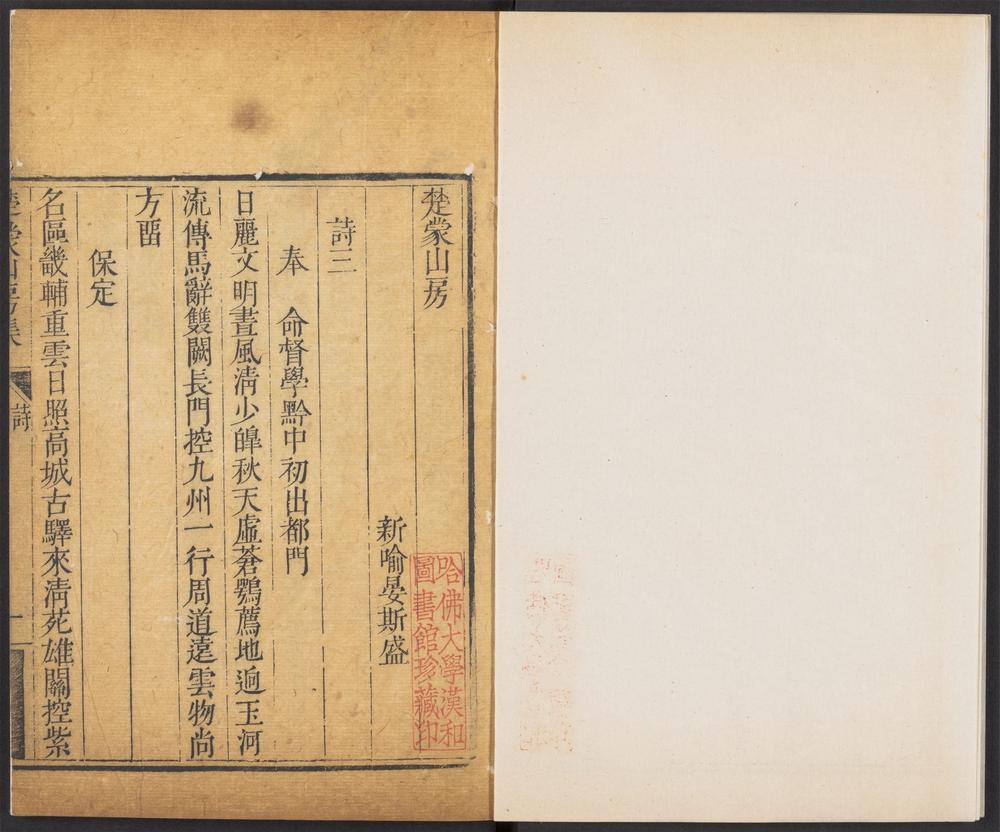 楚蒙山房
新喻晏斯盛
詩三
奉　命督學黔中初出都門
日麗文明晝風清少皥秋天虛蒼鶚薦地逈玉河
流傳馬辭雙闕長門控九州一行周道遠雲物尚
方畱
保定
名區畿輔重雲日照高城古驛來清苑雄關控紫
楚蒙山房集
詩
一
哈佛大學漢和
圖書館珍藏印